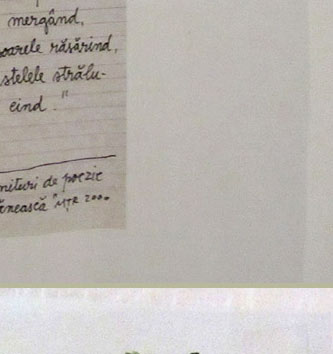 mergând,
soarele răsărind,
stelele strălu-
cind."
nituri de poezie
ănească" MTR 2000